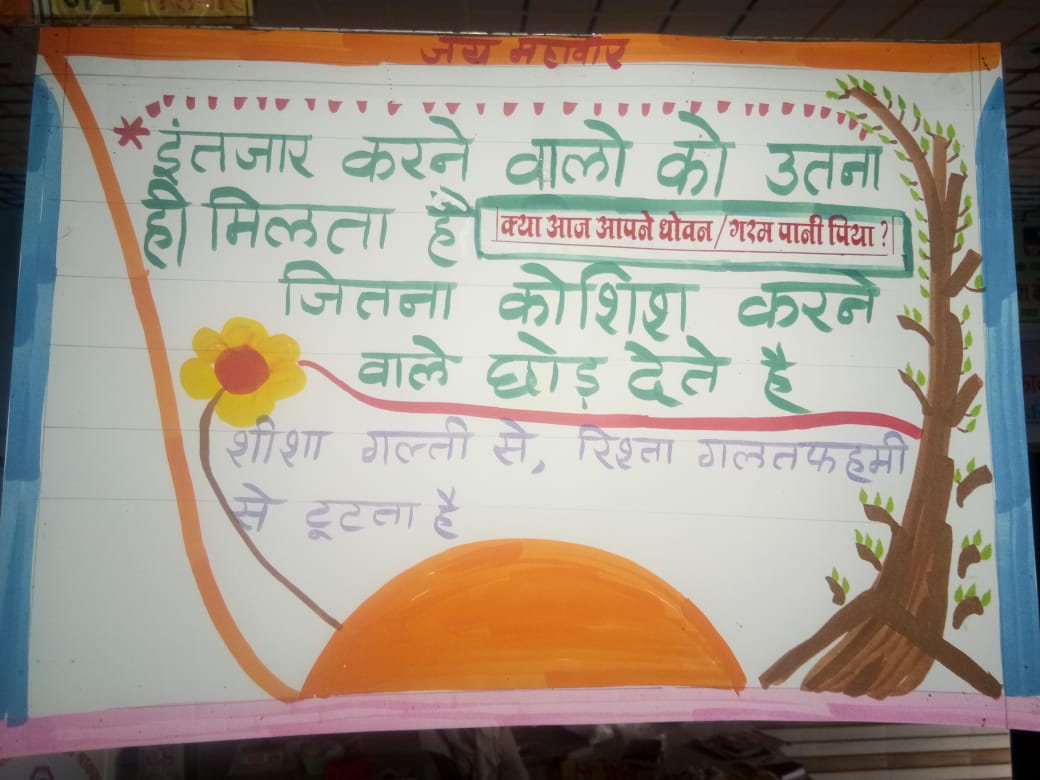 जय महावीर
इंतजार करने वालो को उतना
ही मिलता है
क्या आज आपने धोवन/गरम पानी पिया ?
जितना कोशिश करने
वाले छोड़ देते है
शीशा गल्ती से, रिश्ता गलतफहमी
से टूटता है